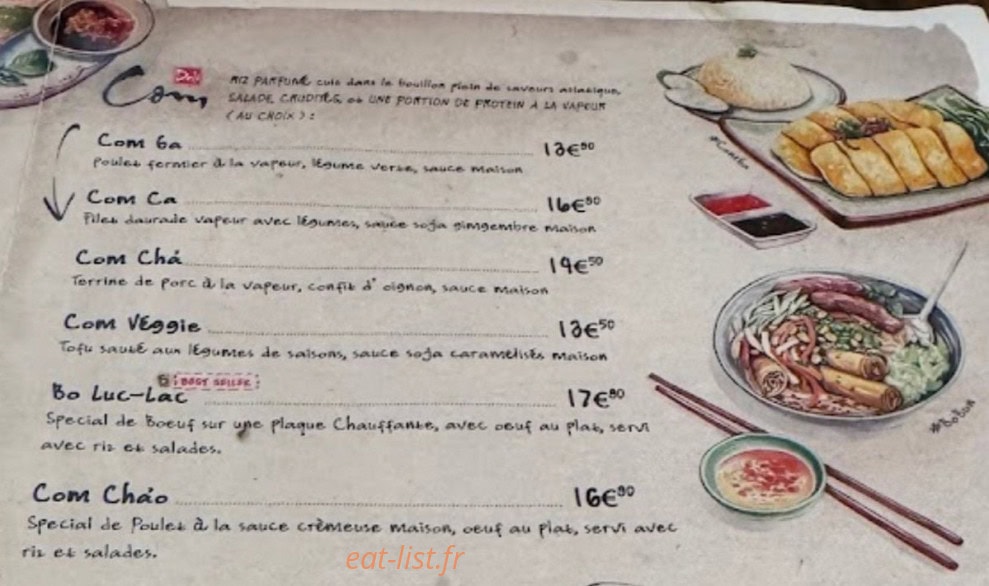 Com
RIZ PARFUMÉ cuis dans le bouillon plein de saveurs asiatique,
SALADE CRUDITÉS, et UNE PORTION DE PROTEIN À LA VAPEUR
(AU CHOIX) :
Com Ga 13€90
Poulet fermier à la vapeur, légume verte, sauce maison
Com Ca 16€90
Filet daurade vapeur avec légumes, sauce soja gimgembre maison
Com Chá 14€50
Terrine de porc à la vapeur, confit d'oignon, sauce maison
Com Véggie 13€50
Tofu sauté aux légumes de saisons, sauce soja caramelisés maison
BEST SELLER
Bo Luc-Lac 17€90
Special de Boeuf sur une plaque Chauffante, avec oeuf au plat, servi
avec riz et salades.
Com Chảo 16€90
Special de Poulet à la sauce crèmeuse maison, oeuf au plat, servi avec
riz et salades.
#BoBun
eat-list.fr